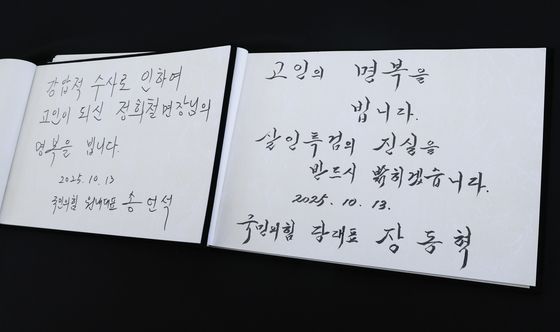 강압적 수사로 인하여
고인이 되신 정희철면장님의
명복을 빕니다
2025. 10. 13
국민의힘 원내대표 송언석
고인의 명복을
빕니다.
살인특검의 진실을
반드시 밝히겠습니다.
2025. 10. 13.
국민의힘 당대표 장동혁